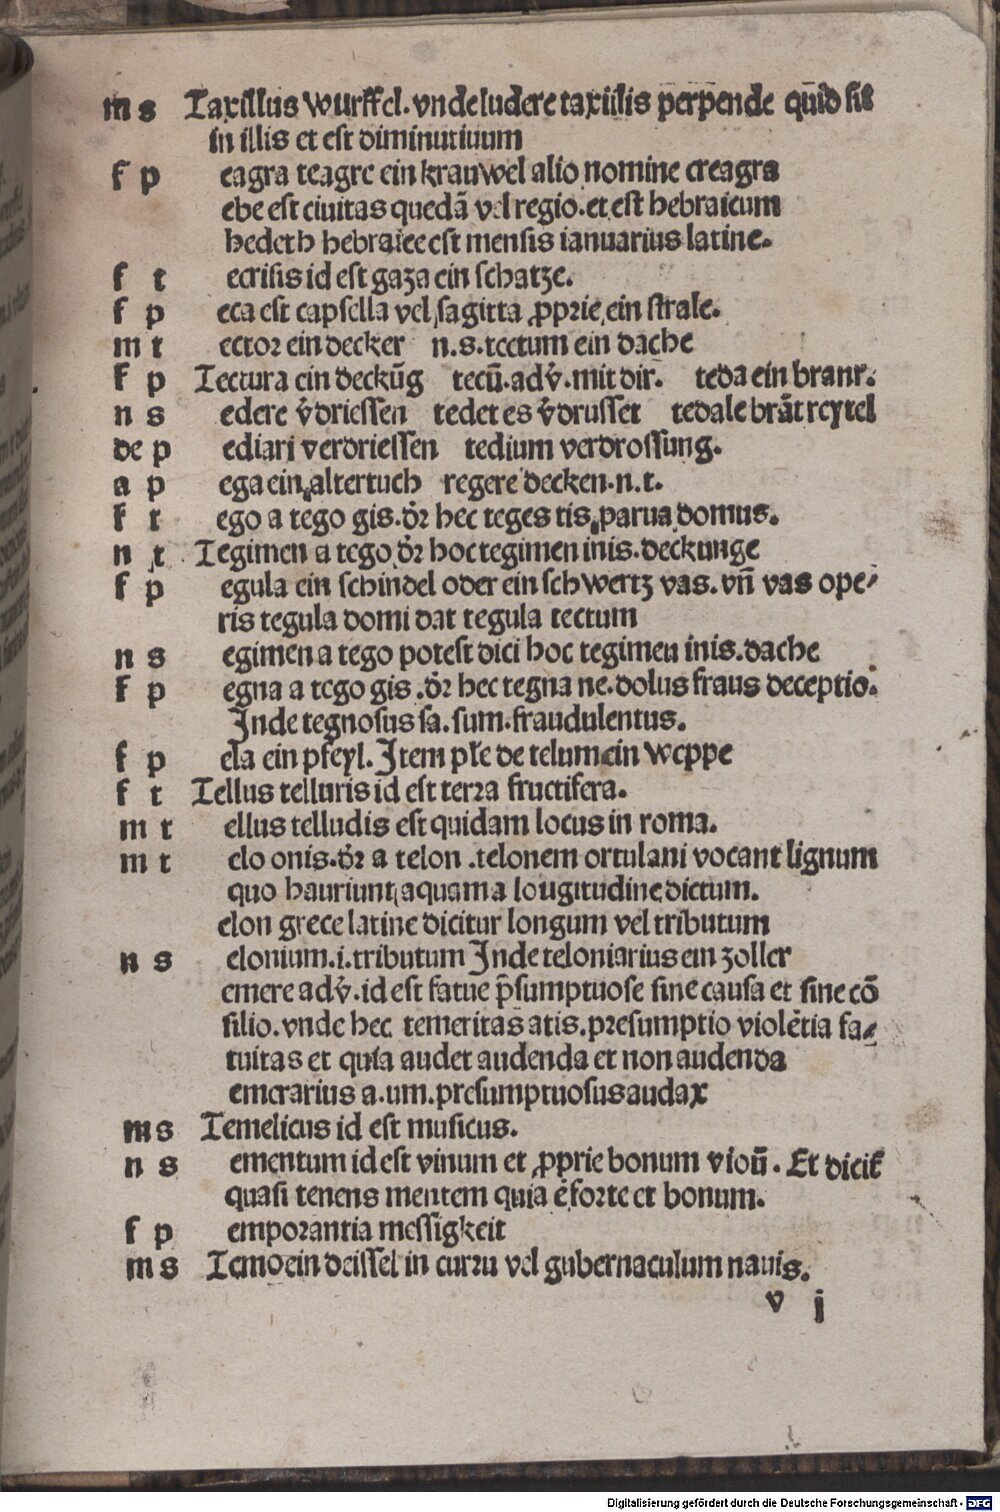 m s Taxillus wurffel. vnde ludere taxillis perpende quid sit
in illis et est diminutiuum
f p eagra teagre ein krauwel alio nomine creagra
ebe est ciuitas quedã vel regio. et est hebraicum
hedeth hebraice est mensis ianuarius latine.
f t ecrisis id est gaza ein schatze.
f p eca est capsella vel sagitta ꝓprie ein strale.
m t ector ein decker n. s. tectum ein dache
f p Tectura ein deckũg tecũ. adv̓. mit dir. teda ein brant.
n s edere v̓driessen tedet es v̓drusset tedale brãt reytel
de p ediari verdriessen tedium verdrossung.
a p ega ein altertuch tegere decken. n. t.
f t ego a tego gis. dr̓ hec teges tis. parua domus.
n t Tegimen a tego dr̓ hoc tegimen inis. deckunge
f p egula ein schindel oder ein schwertz vas. vñ vas ope⸗
ris tegula domi dat tegula tectum
n s egimen a tego potest dici hoc tegimen inis. dache
f p egna a tego gis. dr̓ hec tegna ne. dolus fraus deceptio.
Inde tegnosus sa. sum. fraudulentus.
f p ela ein pfeyl. Item płe de telum ein weppe
f t Tellus telluris id est terra fructifera.
m t ellus telludis est quidam locus in roma.
m t elo onis. dr̓ a telon .telonem ortulani vocant lignum
quo hauriunt aquam a longitudine dictum.
elon grece latine dicitur longum vel tributum
n s elonium. i. tributum Inde teloniarius ein zoller
emere adv̓. id est fatue p̃sumptuose sine causa et sine cõ
silio. vnde hec temeritas atis. presumptio violẽtia fa⸗
tuitas et quia audet audenda et non audenda
emerarius a. um. presumptuosus audax
m s Temelicus id est musicus.
n s ementum id est vinum et ꝓprie bonum vinũ. Et dicit̃
quasi tenens mentem quia ẽ forte et bonum.
f p emporantia messigkeit
m s Temo ein deissel in curru vel gubernaculum nauis.
v j
Digitalisierung gefördert durch die Deutsche Forschungsgemeinschaft - DFG